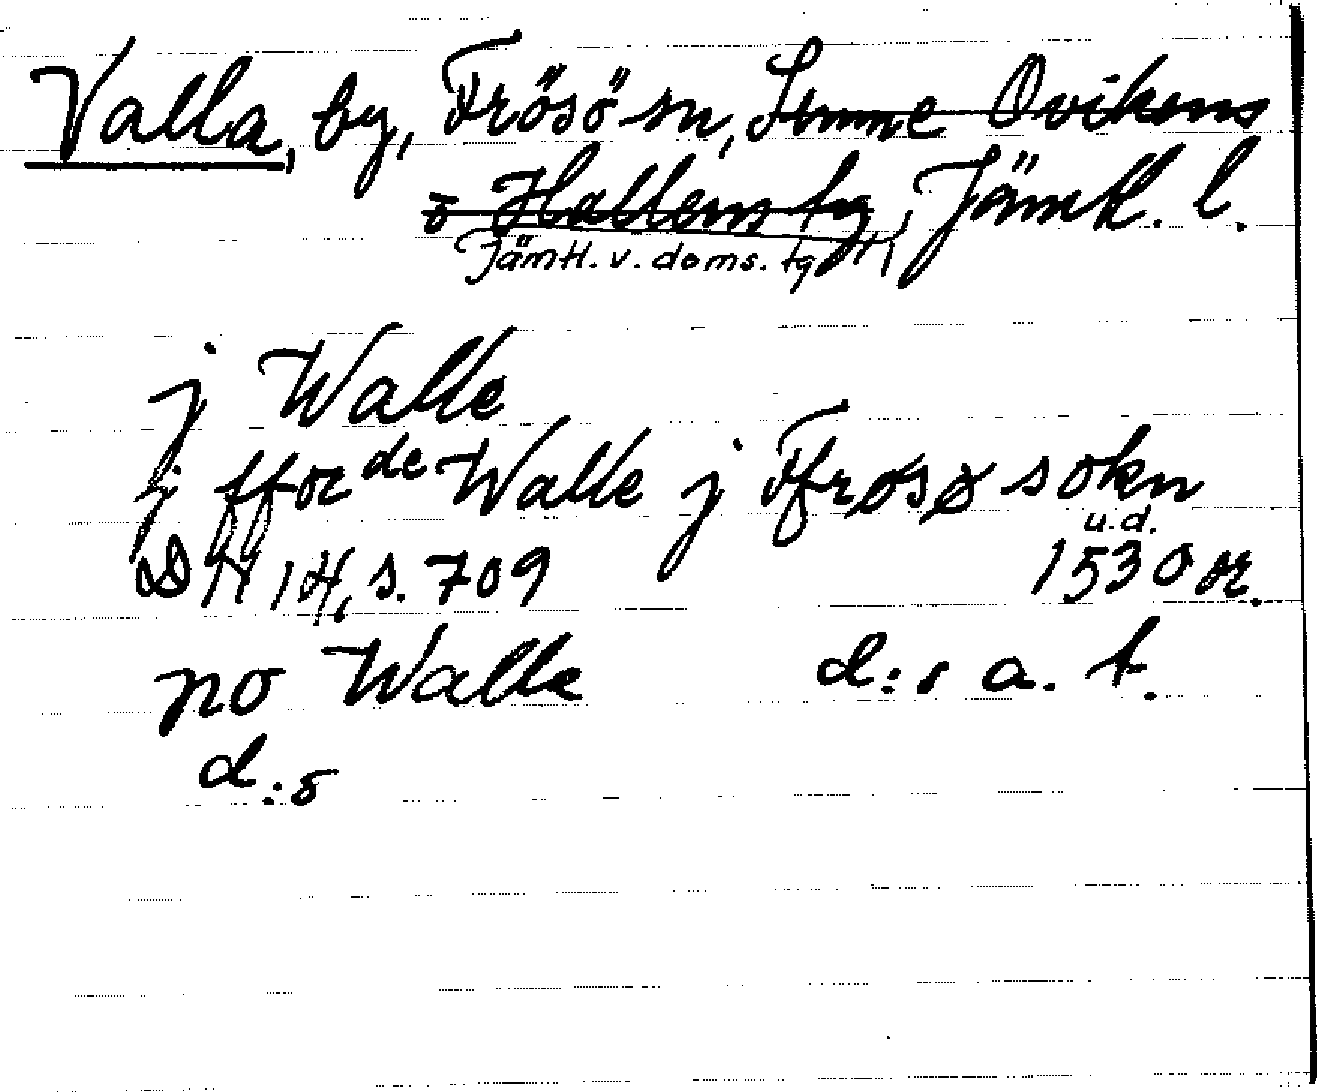 Valla, by, Frösö sn, Sunne Ovikens
o Hallens tg, Jämtl. l.
Jämtl. v. doms. tg
j Walle
j fforde Walle j Ffrøsø sokn
u.d.
DN 14, s. 709 1530 or.
no Walle d:s a. t.
d:s